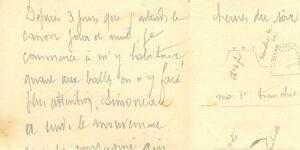 Depuis 3 jours que j'entends le
canon jour et nuit je
commence à m'y habituer
quand aux balles on n'y fait
plus attention, Simoneau
a suivi le mouvement
que la compagnie
heures du soir
ma 1e tranchée